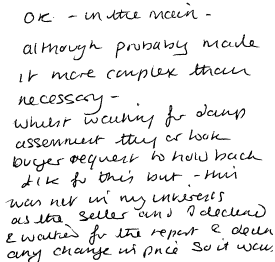 OK - in the main -
although probably made
it more complex than
necessary -
whilst waiting for damp
assessment they or took
buyer request to hold back
£1k for this but - this
was not in my interests
as the seller and I declined
& waited for the report & decli
any change in price so it was